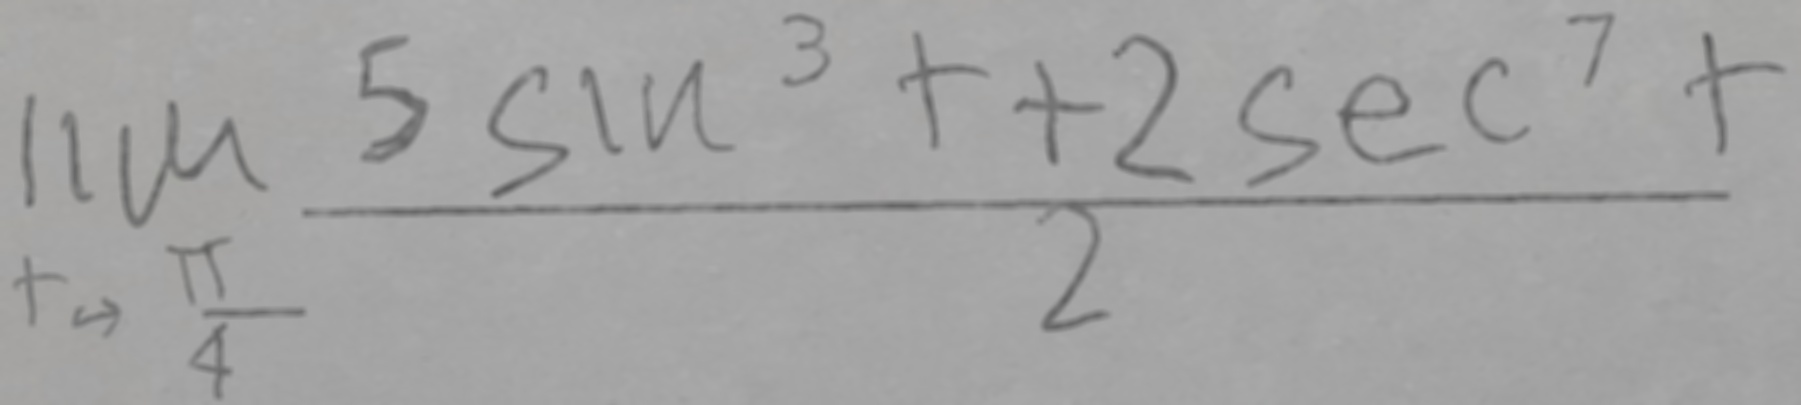 \lim_{t \to \frac{\pi}{4}} \frac{5 \sin^3 t + 2 \sec^7 t}{2}